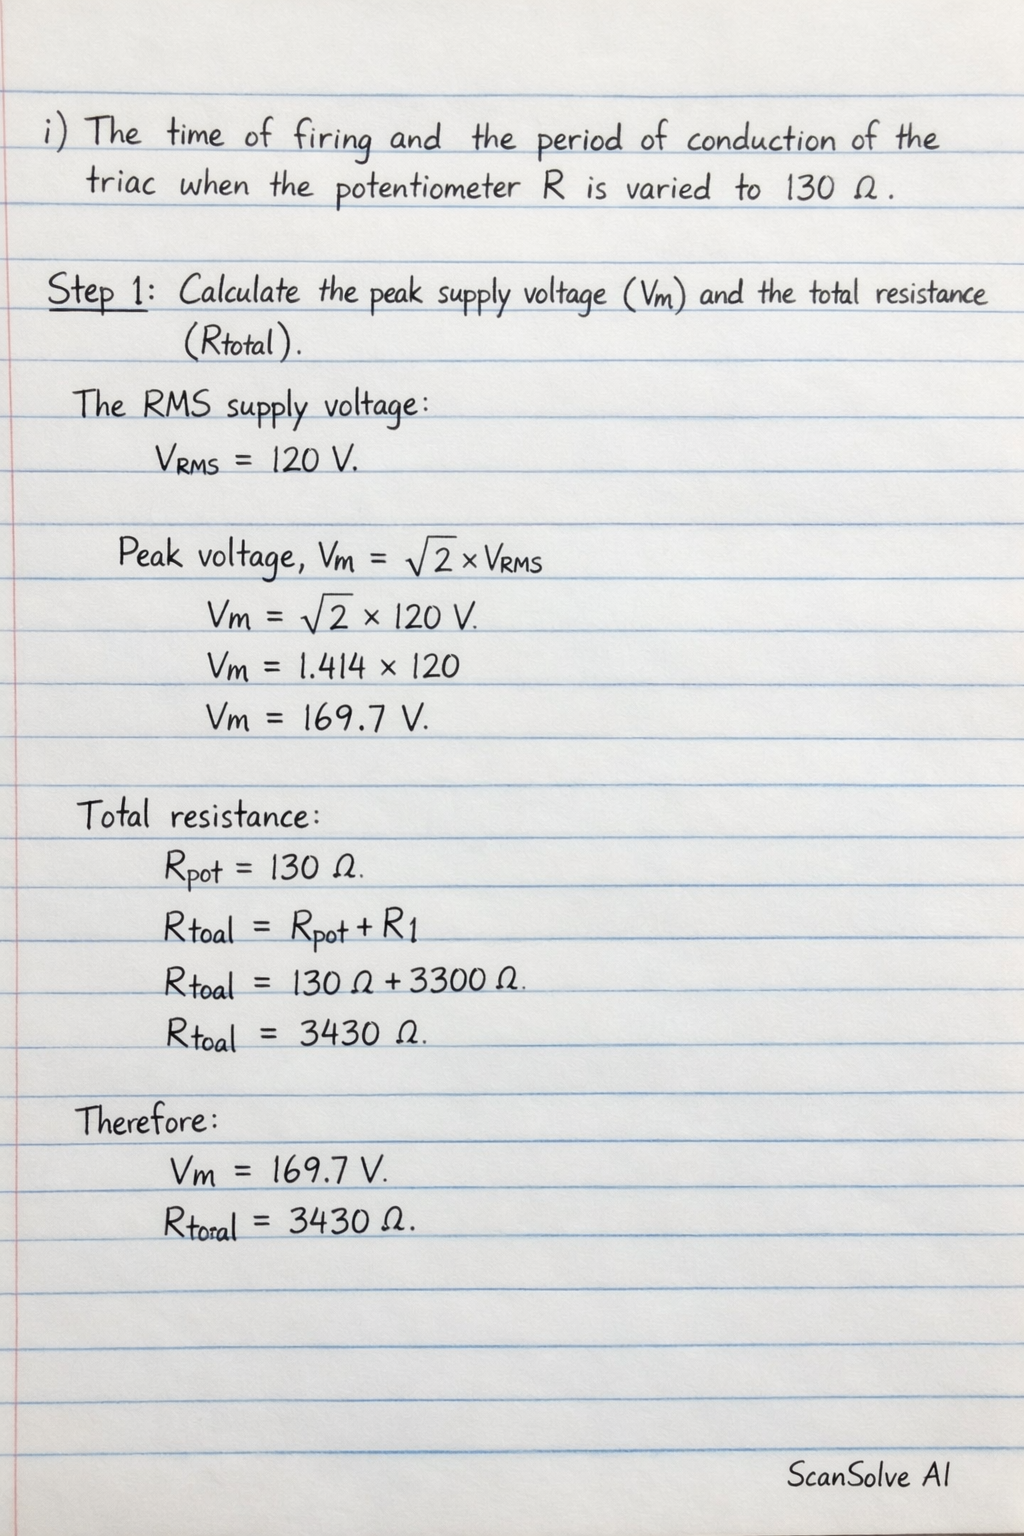 i) The time of firing and the period of conduction of the
triac when the potentiometer R is varied to 130 Ω.
Step 1: Calculate the peak supply voltage (Vm) and the total resistance
(Rtotal).
The RMS supply voltage:
VRMS = 120 V.
Peak voltage, Vm = √2 × VRMS
Vm = √2 × 120 V.
Vm = 1.414 × 120
Vm = 169.7 V.
Total resistance:
Rpot = 130 Ω.
Rtoal = Rpot + R1
Rtoal = 130 Ω + 3300 Ω.
Rtoal = 3430 Ω.
Therefore:
Vm = 169.7 V.
Rtoral = 3430 Ω.
ScanSolve AI